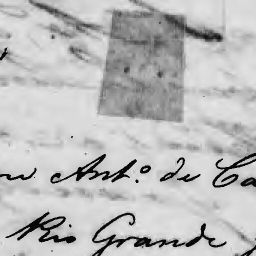 Ant.º de Ca
Rio Grande